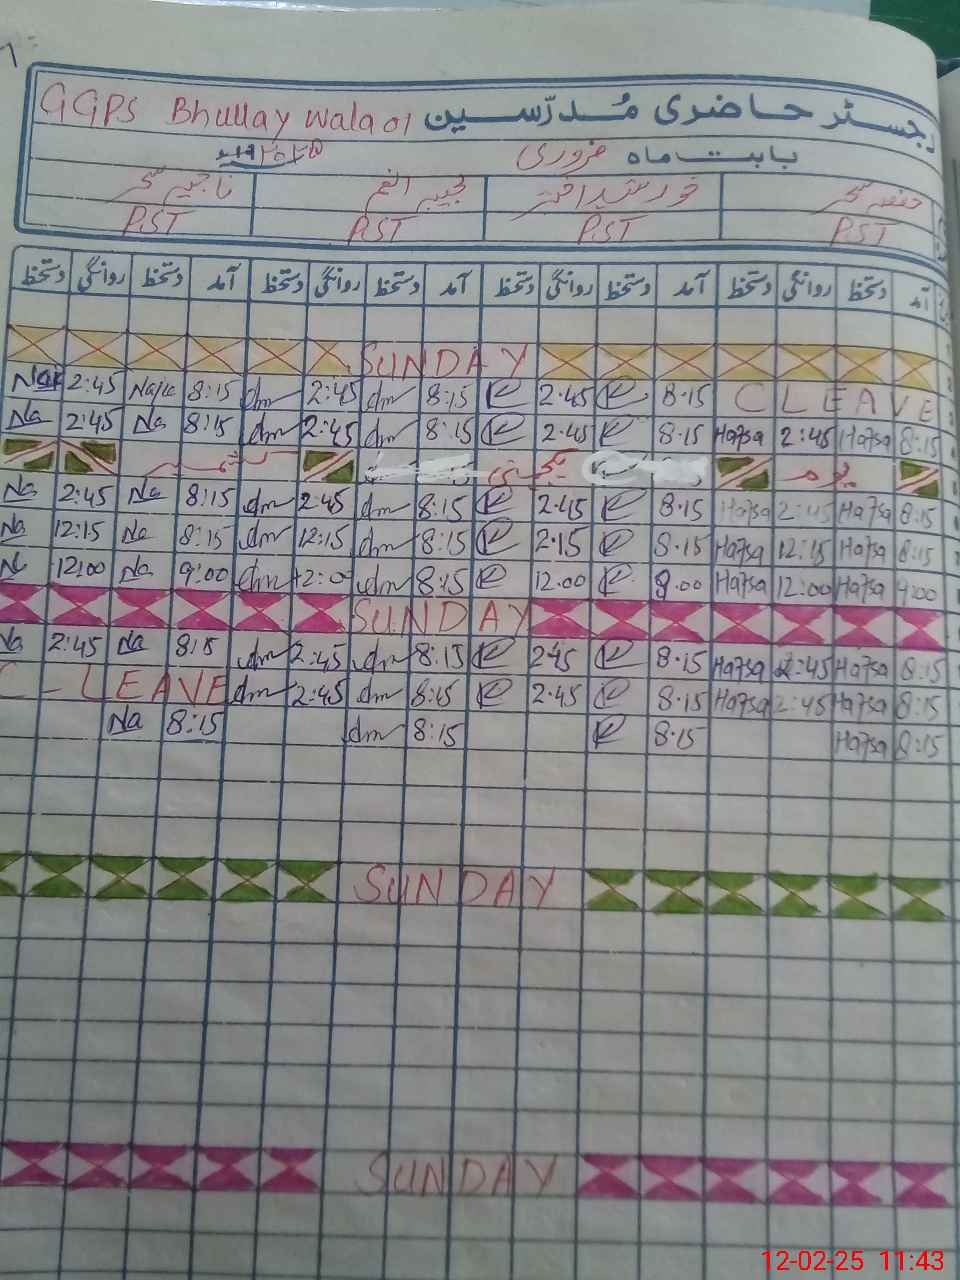 GGPS Bhullay wala 01 رجسٹر حاضری مُدرّسین
بابت ماہ فروری ۲۰۲۵
حفصہ سحر خورشید اختر نجیبہ انعم ناجیہ سحر
PST PST PST PST
آمد دستخط روانگی دستخط آمد دستخط روانگی دستخط آمد دستخط روانگی دستخط آمد دستخط روانگی دستخط
SUNDAY
2:45 8:15 dm 2:45 dm 8:15 R 2.45 R 8.15 C LEAVE
Na 2:45 Na 8:15 dm 2:45 dm 8:15 R 2.45 R 8.15 Hafsa 2:45 Hafsa 8:15
یوم یکجہتی کشمیر
Na 2:45 Na 8:15 dm 2:45 dm 8:15 R 2.45 R 8.15 Hafsa 2:45 Hafsa 8:15
Na 12:15 Na 8:15 dm 12:15 dm 8:15 R 2.15 R 8.15 Hafsa 12:15 Hafsa 8:15
Na 12:00 Na 9:00 dm 12:00 dm 8:15 R 12.00 R 9.00 Hafsa 12:00 Hafsa 9:00
SUNDAY
Na 2:45 Na 8:15 dm 2:45 dm 8:15 R 2.45 R 8.15 Hafsa 2:45 Hafsa 8:15
C-LEAVE dm 2:45 dm 8:15 R 2.45 R 8.15 Hafsa 2:45 Hafsa 8:15
Na 8:15 dm 8:15 R 8.15 Hafsa 8:15
SUNDAY
SUNDAY
12-02-25 11:43